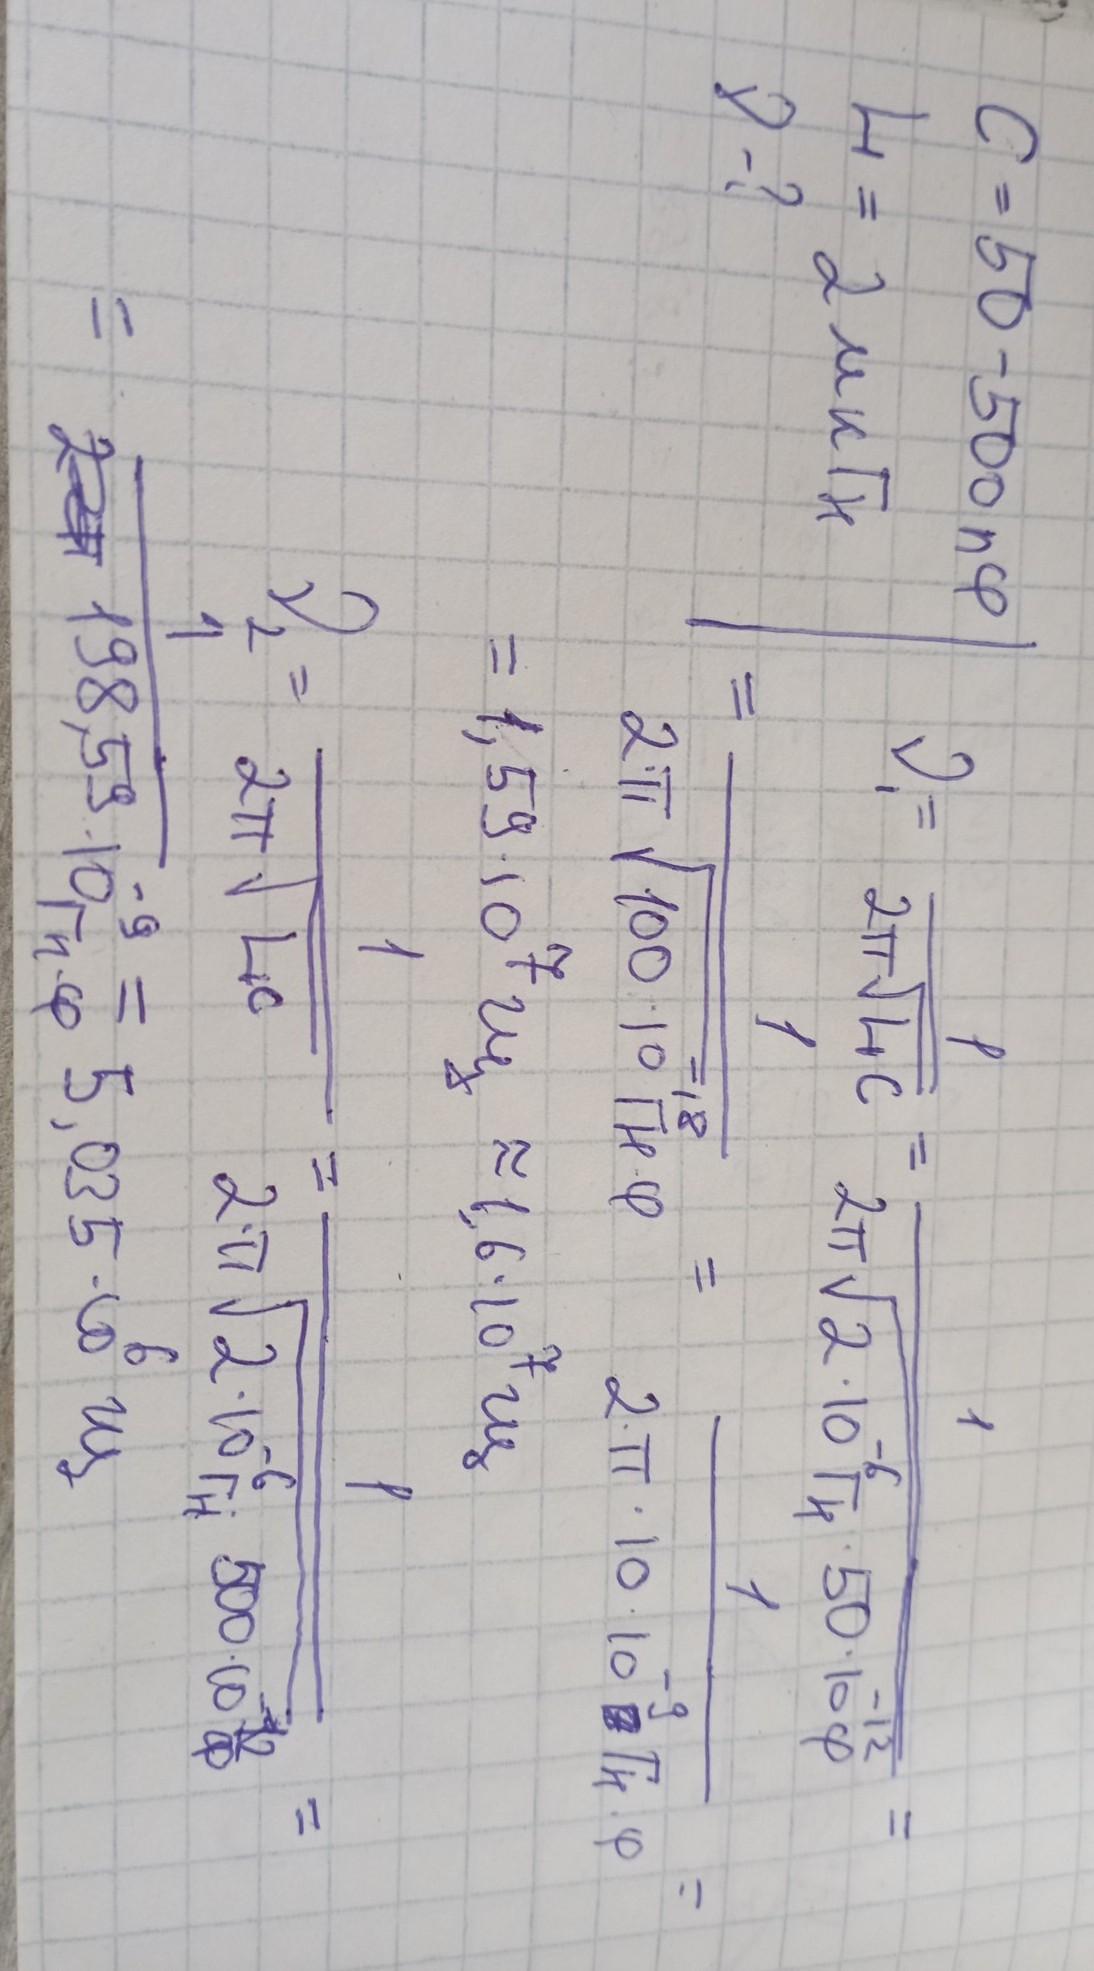 C = 50 - 500 пФ
L = 2 мкГн
ν - ?
ν₁ = 1/(2π√(LC)) = 1/(2π√(2·10⁻⁶ Гн · 50·10⁻¹² Ф)) =
= 1/(2π√(100·10⁻¹⁸ Гн·Ф)) = 1/(2·π·10·10⁻⁹ Гн·Ф) =
= 1,59·10⁷ Гц ≈ 1,6·10⁷ Гц
ν₂ = 1/(2π√(LC)) = 1/(2·π√(2·10⁻⁶ Гн 500·10⁻¹² Ф)) =
= 1/(198,59·10⁻⁹ Гн·Ф) = 5,035·10⁶ Гц